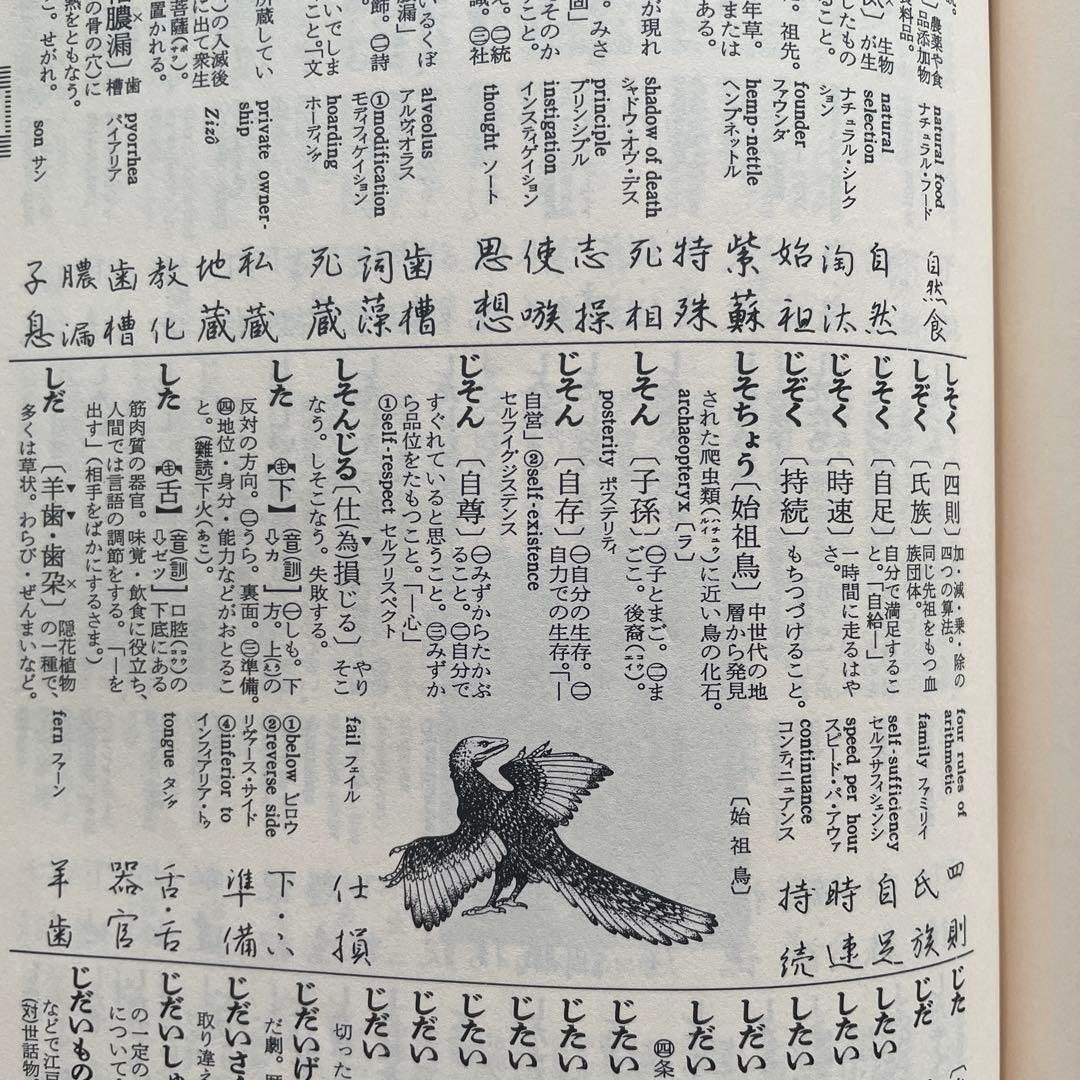 農薬や食
品添加物
食料品。
natural food
ナチュラル・フード
自然食
生物
が生
したもの
ること。
natural
selection
ナチュラル・シレク
ション
自然
淘汰
祖先。
founder
ファウンダ
始祖
年草。
または
ある。
hemp-nettle
ヘンプネットル
紫蘇
特殊
が現れ
shadow of death
シャドウ・オヴ・デス
死相
みさ
principle
プリンシプル
志操
そのか
こと。
instigation
インスティゲイション
使嗾
㊁統
㊂社
thought ソート
思想
いるくぼ
alveolus
アルヴィオラス
歯槽
㊁詩
①modification
モディフィケイション
詞藻
いでしま
こと。「文
hoarding
ホーディング
死蔵
所蔵してい
private owner-
ship
私蔵
の入滅後
に出て衆生
菩薩
置かれる。
Zizō
地蔵
教化
膿漏〕歯
の骨の穴)に
熱をともなう。
pyorrhea
パイアリア
歯槽
膿漏
せがれ。
son サン
子息
しそく〔四則〕加・減・乗・除の
四つの算法。
four rules of
arithmetic
四則
しぞく〔氏族〕同じ先祖をもつ血
族団体。
family ファミリイ
氏族
じそく〔自足〕自分で満足するこ
と。「自給―」
self-sufficiency
セルフサフィシェンシ
自足
じそく〔時速〕一時間に走るはや
さ。
speed per hour
スピード・パ・アウァ
時速
じぞく〔持続〕もちつづけること。
continuance
コンティニュアンス
持続
しそちょう〔始祖鳥〕中世代の地
層から発見
された爬虫類(ルイ)に近い鳥の化石。
archaeopteryx〔ラ〕
〔始祖鳥〕
しそん〔子孫〕㊀子とまご。㊁ま
ごこ。後裔(コウエイ)。
posterity ポステリティ
じそん〔自存〕㊀自分の生存。㊁
自力での生存。「―
自営」②self-existence
セルフイグジステンス
じそん〔自尊〕㊀みずからたかぶ
ること。㊁自分で
すぐれていると思うこと。㊂みずか
ら品位をたもつこと。「―心」
①self-respect セルフリスペクト
しそんじる〔仕(為)損じる〕やり
そこ
なう。しそこなう。失敗する。
fail フェイル
仕損
した【下】(音)(訓)⇩カ ㊀しも。下
方。上(うえ)の
反対の方向。㊁うら。裏面。㊂準備。
㊃地位・身分・能力などがおとるこ
と。(難読)下火(あこ)。
①below ビロウ
②reverse side
リヴァース・サイド
④inferior to
インフィアリア・トゥ
下・六
準備
した【舌】(音)(訓)⇩ゼツ 口腔(コウコウ)の
下底にある
筋肉質の器官。味覚・飲食に役立ち、
人間では言語の調節をする。「―を
出す」(相手をばかにするさま。)
tongue タング
舌・舌
器官
しだ〔羊歯・歯朶〕隠花植物
の一種で、
多くは草状。わらび・ぜんまいなど。
fern ファーン
羊歯
じた
じだ
したい
したい
したい
しだい
㊃条
じたい
じたい
じたい
じだい
じだい
切った
じだいげ
だ劇。
じだいさ
取り違え
じだいしゅ
の一定の
について
じだいもの
などで江戸
(対)世話物